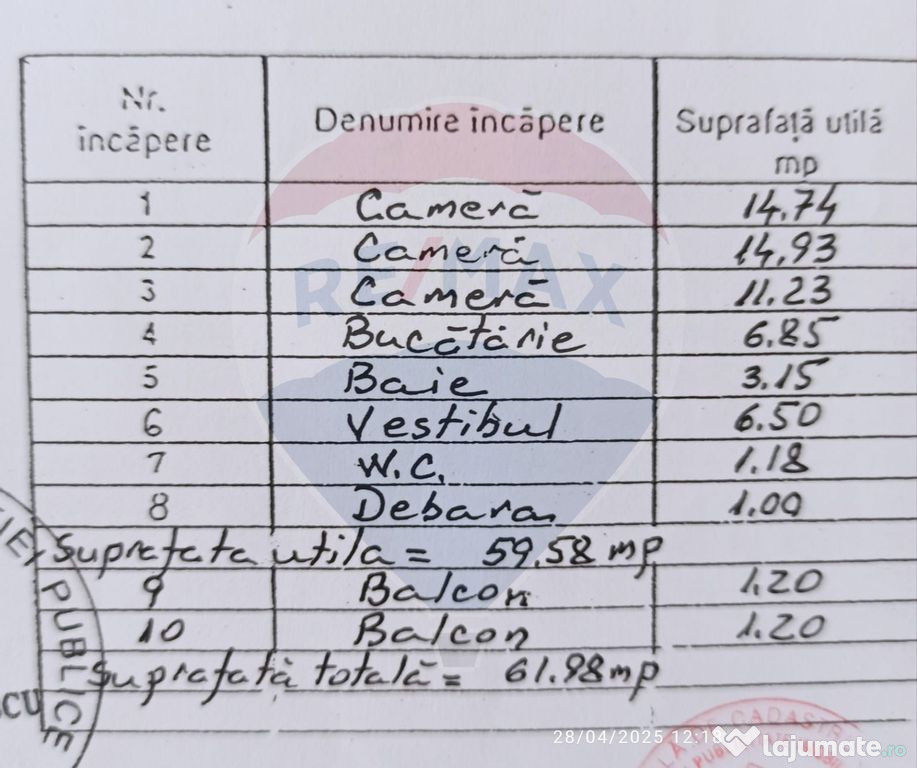 Nr. încăpere Denumire încăpere Suprafață utilă mp
1 Cameră 14.74
2 Cameră 14,93
3 Cameră 11.23
4 Bucătărie 6.85
5 Baie 3.15
6 Vestibul 6.50
7 W.C. 1.18
8 Debara 1.00
Suprafata utila = 59.58 mp
9 Balcon 1.20
10 Balcon 1.20
Suprafată totală = 61.98 mp
RE/MAX
PUBLICE
CADASTR
28/04/2025 12:18
lajumate.ro